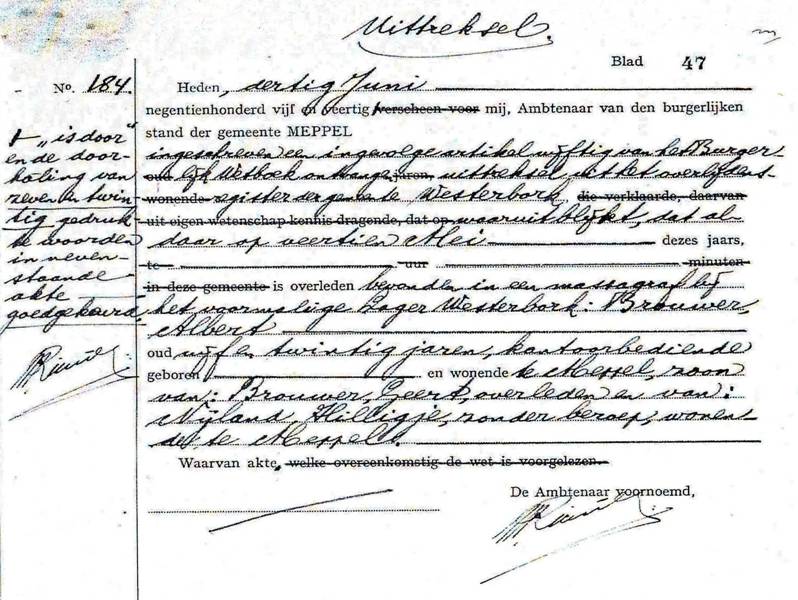 Uittreksel.
Blad 47
No. 184.
Heden, dertig Juni
negentienhonderd vijf en veertig verscheen voor mij, Ambtenaar van den burgerlijken
stand der gemeente MEPPEL
ingeschreven een ingevolge artikel vijftig van het Burger-
lijk Wetboek ontvangen uittreksel uit het overlijdens-
wonende register der gemeente Westerbork, die verklaarde, daarvan
uit eigen wetenschap kennis dragende, dat op waaruit blijkt, dat al-
daar op veertien Mei dezes jaars,
te uur minuten
in deze gemeente is overleden bevonden in een massagraf bij
het voormalige Lager Westerbork: Brouwer,
Albert
oud vijf en twintig jaren, kantoorbediende
geboren en wonende te Meppel, zoon
van: Brouwer, Geert, overleden en van:
Nijland, Hilligje, zonder beroep, wonen-
de te Meppel.
Waarvan akte, welke overeenkomstig de wet is voorgelezen.
De Ambtenaar voornoemd,
"is door"
en de door-
haling van
zeven en twin-
tig gedruk-
te woorden
in neven-
staande
akte
goedgekeurd.